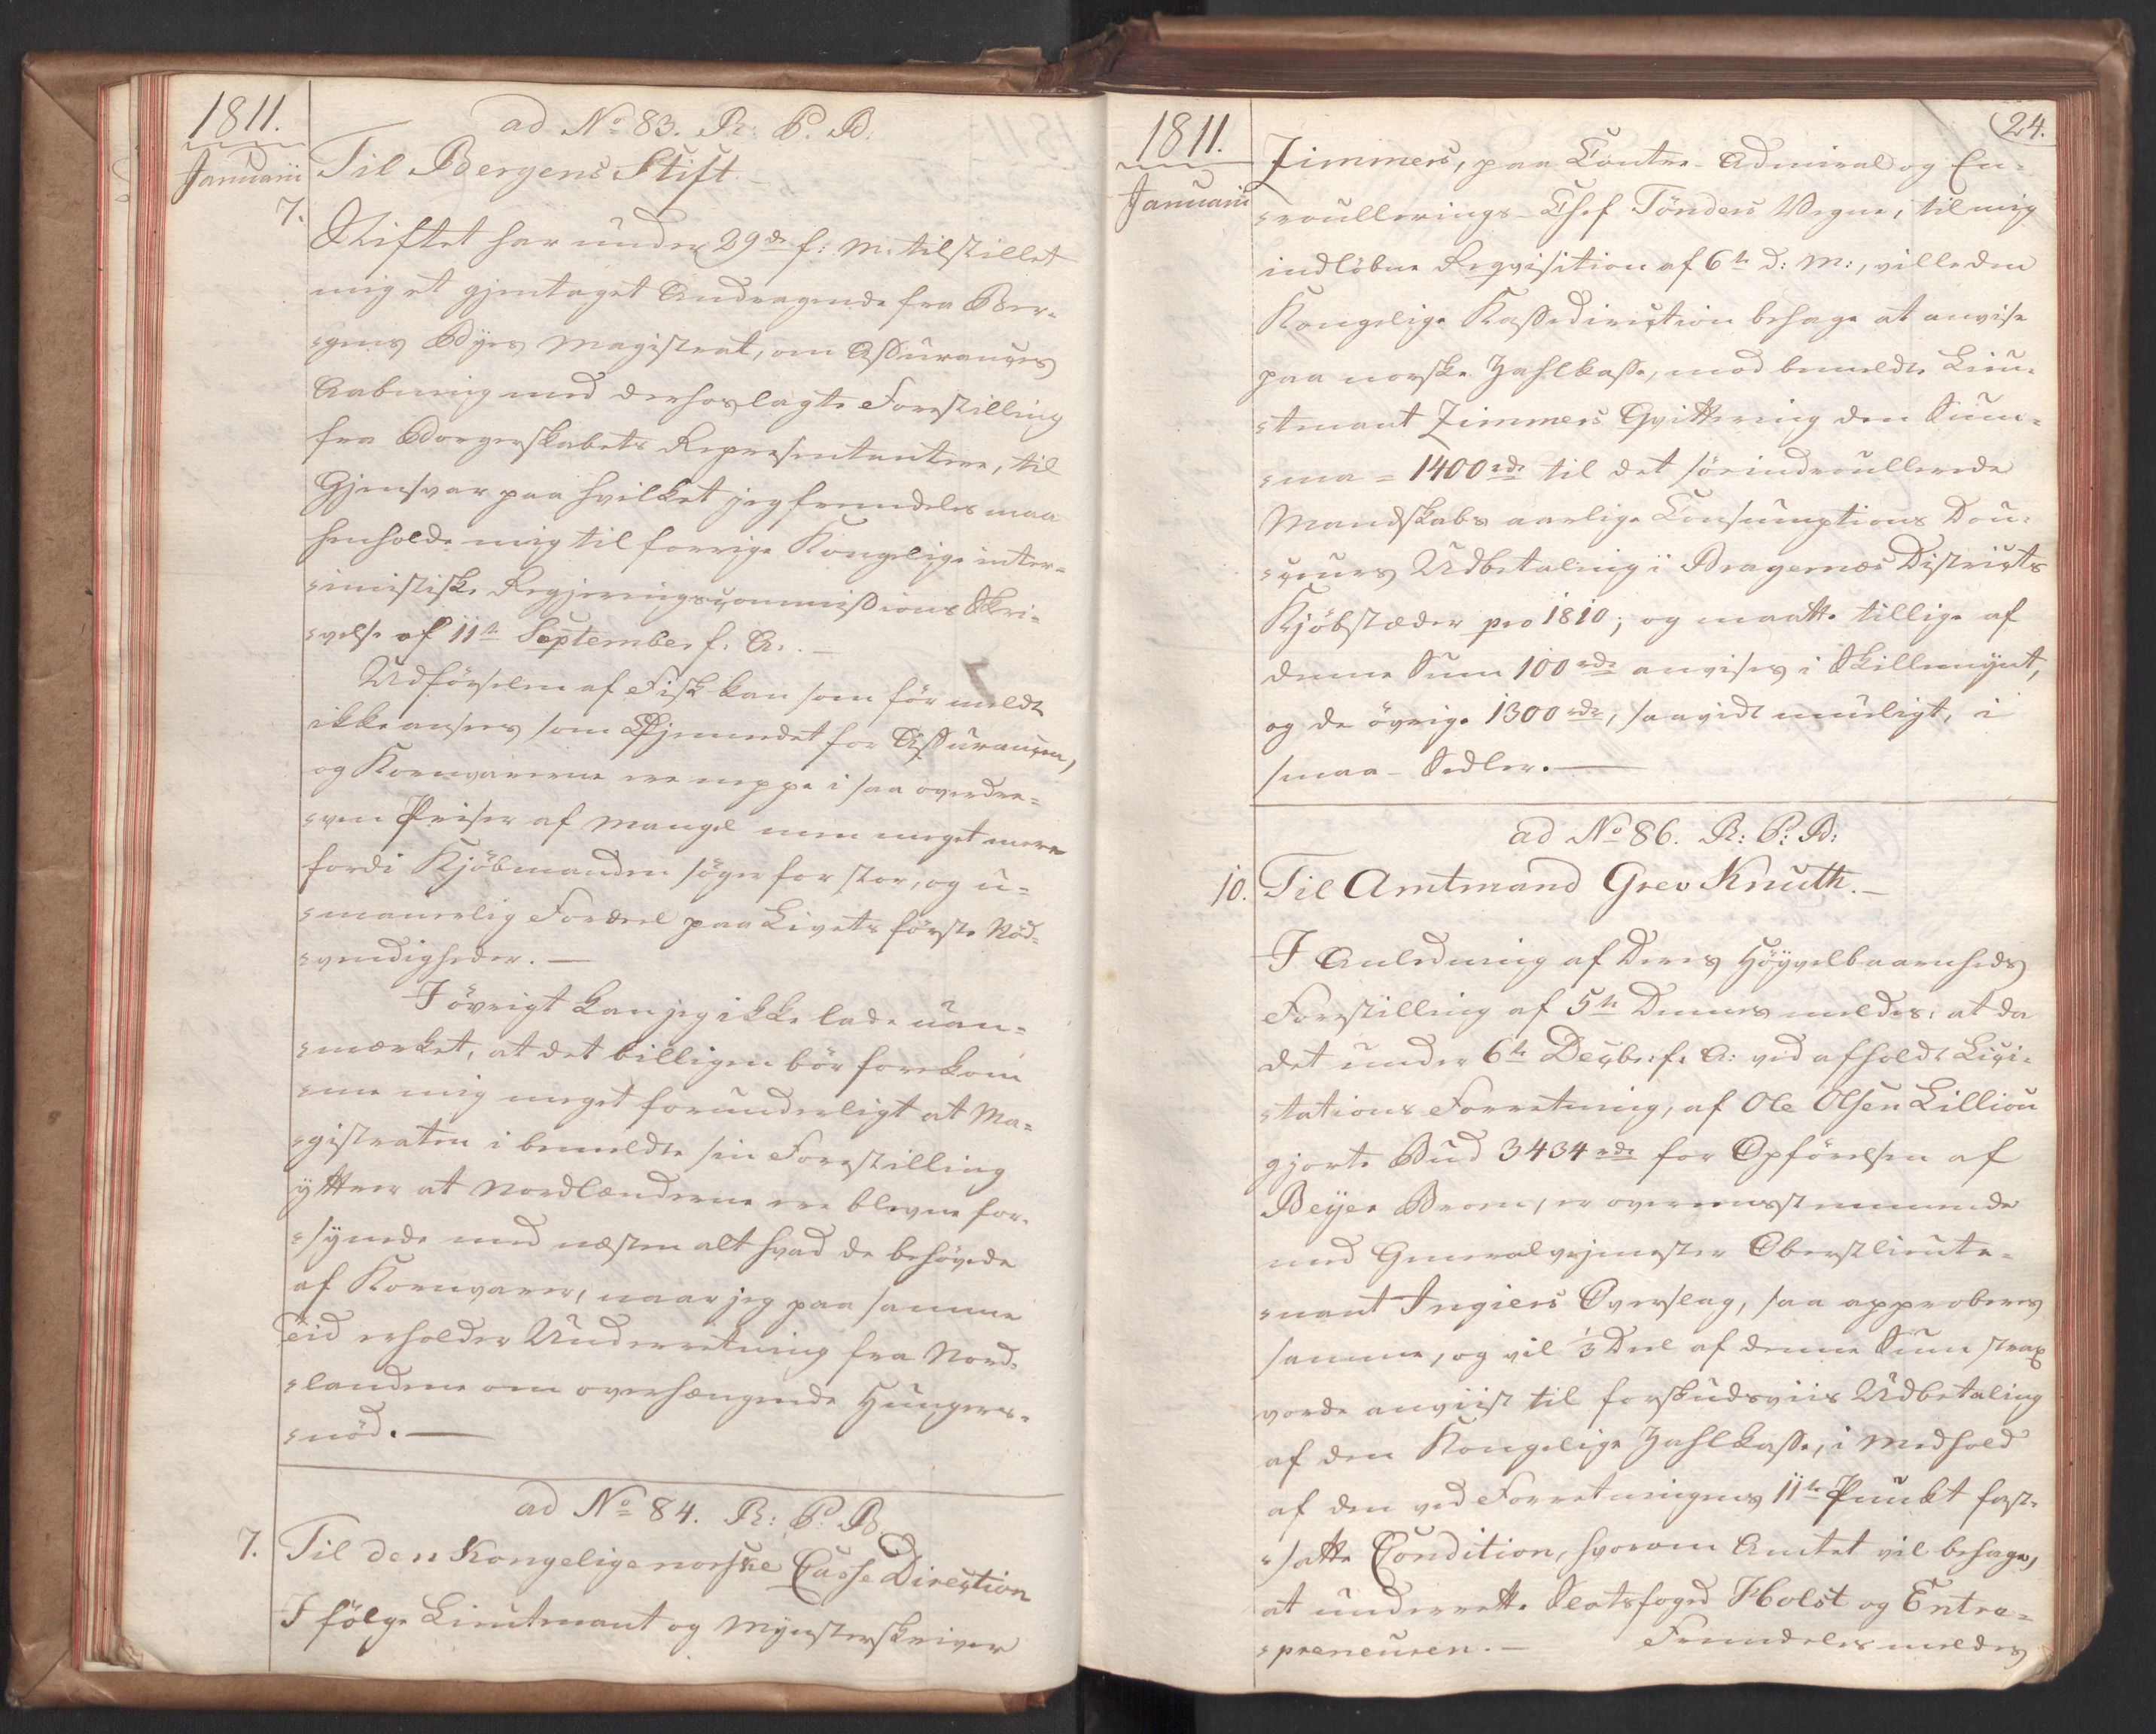 1811.
Januarii
ad No 83. R: P. B:
Til Bergens Stift.
7.
Stiftet har under 29de f: M: tilstillet
mig et gjentaget Andragende fra Ber-
-gens Byes Magistrat, om Assurances
Aabning med derhos lagte Forestilling
fra Borgerskabets Repræsentantere, til
Gjensvar paa hvilket jeg fremdeles maa
henholde mig til forrige Kongelige inter-
-imistiske Regjeringscommissions Skri-
-velse af 11te September f: A:. —
Udförselen af Fisk kan som för meldt
ikke ansees som Öjemedet for Assurancen,
og Kornvarerne ere neppe i saa overdre-
-ven Priser af Mangel men meget mere
fordi Kjöbmanden söger for stor, og u-
-manerlig Fordeel paa Livets förste Nöd-
-vendigheder. —
I övrigt kan jeg ikke lade uan-
-mærket, at det billigen bör forekom
-me mig meget forunderligt at Ma-
-gistraten i bemeldte sin Forestilling
yttrer at Nordlænderne ere blevne for-
-synede med næsten alt hvad de behövede
af Kornvarer, naar jeg paa samme
Tid erholder Underretning fra Nord-
-landene om overhængende Hungers-
-nöd. —
ad No 84. R: P: B.
7. Til den Kongelige norske Casse Direction
I fölge Lieutenant og Mynsterskriver
24.
1811.
Januarii
Zimmers, paa Contre-Admiral og En-
-roullerings-Chef Tönders Vegne, til mig
indlöbne Reqvisition af 6te d: M:, ville den
Kongelige Kassedirection behage at anvise
paa norske Zahlkasse, mod bemeldte Lieu-
-tenant Zimmers Qvittering den Sum-
-ma = 1400 rdr til det söeindroullerede
Mandskabs aarlige Consumptions Dou-
-ceurs Udbetaling i Bragernæs Districts
Kjöbstæder pro 1810; og maatte tillige af
denne Sum 100 rdr anvises i Skillemynt,
og de övrige 1300 rdr, saavidt mueligt, i
smaa-Sedler. —
ad No 86. R: P: B:
10. Til Amtmand Grev Knuth. —
I Anledning af Deres Höyvelbaarenheds
Forestilling af 5te Dennes meldes: at da
det under 6te Decbr: f: A: ved afholdt Lici-
-tations Forretning, af Ole Olsen Lillion
gjorte Bud 3434 rdr for Opförelsen af
Beyer Broen, er overensstemmende
med Generalvejmester Oberstlieute-
-nant Ingiers Overslag, saa approberes
samme, og vil 1/3 Deel af denne Sum strax
vorde anviist til forskudsviis Udbetaling
af den Kongelige Zahlkasse, i Medhold
af den ved Forretningens 11te Punkt fast-
-satte Condition, hvorom Amtet vil behage,
at underrette Slotsfoged Holst og Entre-
-preneuren. — Fremdeles meldes